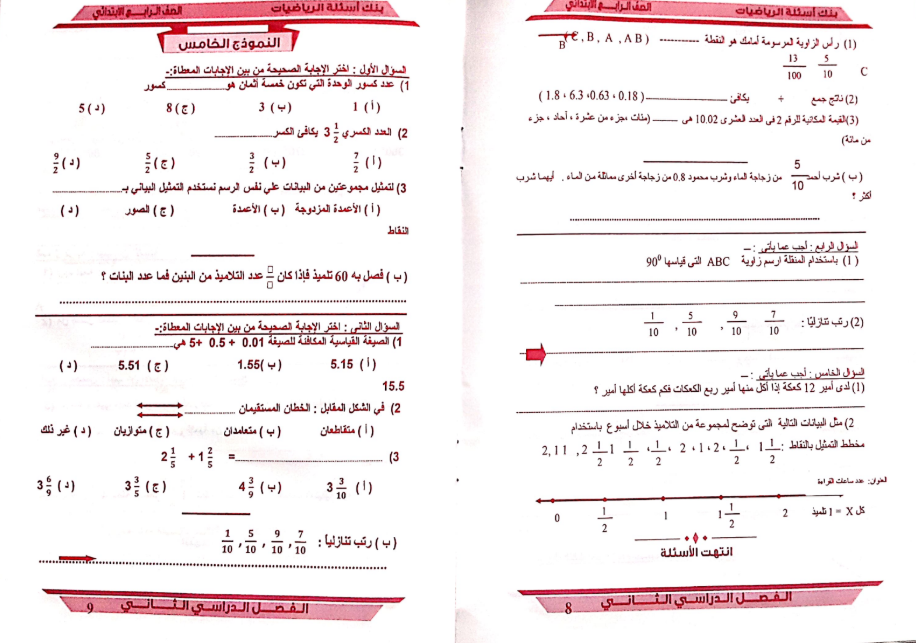 بنك أسئلة الرياضيات
الصف الرابع الابتدائي
(1) رأس الزاوية المرسومة أمامك هو النقطة ---------- ( C , B , A , AB
B
C
(2) ناتج جمع 5/10 + 13/100 يكافئ ............ ( 0.18 ، 0.63 ، 6.3 ، 1.8 )
(3) القيمة المكانية للرقم 2 فى العدد العشرى 10.02 هى ـــــــ (مئات ،جزء من عشرة ، أحاد ، جزء
من مائة)
( ب ) شرب أحمد 5/10 من زجاجة الماء وشرب محمود 0.8 من زجاجة أخرى مماثلة من الماء . أيهما شرب
أكثر ؟
السؤال الرابع : أجب عما يأتى : –
( 1 ) باستخدام المنقلة ارسم زاوية ABC التى قياسها 90⁰
(2) رتب تنازليًا : 7/10 , 9/10 , 5/10 , 1/10
السؤال الخامس : أجب عما يأتى : –
(1) لدى أمير 12 كعكة إذا أكل منها أمير ربع الكعكات فكم كعكة أكلها أمير ؟
2) مثل البيانات التالية التى توضح لمجموعة من التلاميذ خلال أسبوع باستخدام
مخطط التمثيل بالنقاط :
العنوان: عدد ساعات القراءة
0 1/2 1 1 1/2 2
كل X = 1 تلميذ
انتهت الأسئلة
الفصل الدراسي الثاني
8
بنك أسئلة الرياضيات
الصف الرابع الابتدائي
النموذج الخامس
السؤال الأول : اختر الإجابة الصحيحة من بين الإجابات المعطاة:-
1) عدد كسور الوحدة التي تكون خمسة أثمان هو............كسور
( أ ) 1 ( ب ) 3 ( ج ) 8 ( د ) 5
2) العدد الكسري 3 1/2 يكافئ الكسر............
( أ ) 7/2 ( ب ) 3/2 ( ج ) 5/2 ( د ) 9/2
3) لتمثيل مجموعتين من البيانات علي نفس الرسم نستخدم التمثيل البياني بـ............
( أ ) الأعمدة المزدوجة ( ب ) الأعمدة ( ج ) الصور ( د )
النقاط
( ب ) فصل به 60 تلميذ فإذا كان □/□ عدد التلاميذ من البنين فما عدد البنات ؟
السؤال الثانى : اختر الإجابة الصحيحة من بين الإجابات المعطاة:-
1) الصيغة القياسية المكافئة للصيغة 0.01 + 0.5 + 5 هي............
( أ ) 5.15 ( ب) 1.55 ( ج ) 5.51 ( د )
15.5
2) في الشكل المقابل : الخطان المستقيمان ............
( أ ) متقاطعان ( ب ) متعامدان ( ج ) متوازيان ( د ) غير ذلك
3) 2 1/5 + 1 2/5 = ............
( أ ) 3 3/10 ( ب ) 4 3/9 ( ج ) 3 3/5 ( د ) 3 6/9
( ب ) رتب تنازلياً : 7/10 , 9/10 , 5/10 , 1/10
الفصل الدراسي الثاني
9